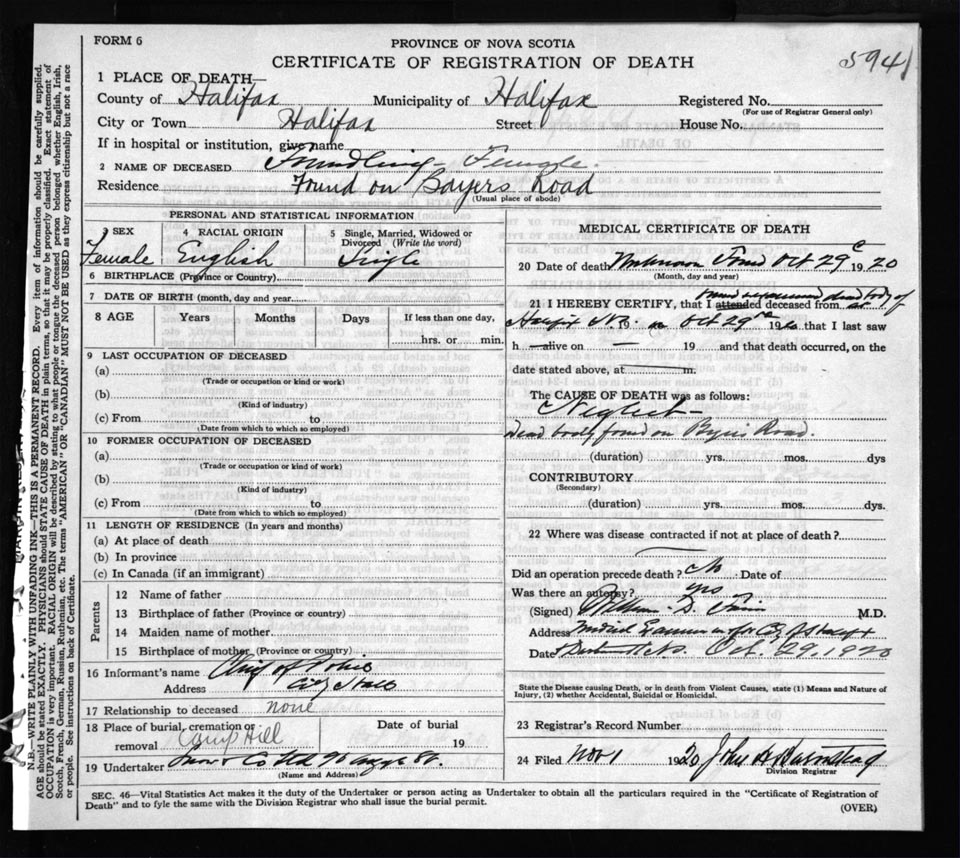 FORM 6
PROVINCE OF NOVA SCOTIA
CERTIFICATE OF REGISTRATION OF DEATH
5941
1 PLACE OF DEATH—
County of Halifax Municipality of Halifax Registered No.
(For use of Registrar General only)
City or Town Halifax Street House No.
If in hospital or institution, give name
2 NAME OF DECEASED Foundling – Female.
Residence Found on Bayers Road
(Usual place of abode)
PERSONAL AND STATISTICAL INFORMATION
3 SEX 4 RACIAL ORIGIN 5 Single, Married, Widowed or
Divorced (Write the word)
Female English Single
6 BIRTHPLACE (Province or Country)
7 DATE OF BIRTH (month, day and year)
8 AGE Years Months Days If less than one day,
hrs. or min.
9 LAST OCCUPATION OF DECEASED
(a)
(Trade or occupation or kind or work)
(b)
(Kind of industry)
(c) From to
(Date from which to which so employed)
10 FORMER OCCUPATION OF DECEASED
(a)
(Trade or occupation or kind of work)
(b)
(Kind of industry)
(c) From to
(Date from which to which so employed)
11 LENGTH OF RESIDENCE (In years and months)
(a) At place of death
(b) In province
(c) In Canada (if an immigrant)
Parents
12 Name of father
13 Birthplace of father (Province or country)
14 Maiden name of mother
15 Birthplace of mother (Province or country)
16 Informant's name Chief of Police
Address City Hall
17 Relationship to deceased none
18 Place of burial, cremation or Date of burial
removal Camp Hill 19
19 Undertaker Snow & Co Ltd 90 Argyle St.
(Name and Address)
MEDICAL CERTIFICATE OF DEATH
20 Date of death Unknown Found Oct 29 1920
(Month, day and year)
21 I HEREBY CERTIFY, that I attended deceased from dead body of
Halifax N.S. 19 Oct 29 19 that I last saw
h alive on — 19 and that death occurred, on the
date stated above, at m.
The CAUSE OF DEATH was as follows:
Neglect –
Dead body found on Byers Road.
(duration) yrs. mos. dys
CONTRIBUTORY
(Secondary)
(duration) yrs. mos. dys.
22 Where was disease contracted if not at place of death?
Did an operation precede death? No Date of
Was there an autopsy? yes
(Signed) William D. M.D.
Address Medical Examiner for City of Halifax
Date Oct. 29, 1920
State the Disease causing Death, or in death from Violent Causes, state (1) Means and Nature of
Injury, (2) whether Accidental, Suicidal or Homicidal.
23 Registrar's Record Number
24 Filed Nov 1 1920 John A
Division Registrar
SEC. 46—Vital Statistics Act makes it the duty of the Undertaker or person acting as Undertaker to obtain all the particulars required in the "Certificate of Registration of
Death" and to fyle the same with the Division Registrar who shall issue the burial permit.
(OVER)
N.B.—WRITE PLAINLY WITH UNFADING INK—THIS IS A PERMANENT RECORD. Every item of information should be carefully supplied.
AGE should be stated EXACTLY. PHYSICIANS should STATE CAUSE OF DEATH in plain terms, so that it may be properly classified. Exact statement of
OCCUPATION is very important. RACIAL ORIGIN will be described by stating to what people or tongue the deceased person belonged whether English, Irish,
Scotch, French, German, Russian, Ruthenian, etc. The terms "AMERICAN" OR "CANADIAN" MUST NOT BE USED as they express citizenship but not a race
or people. See instructions on back of Certificate.